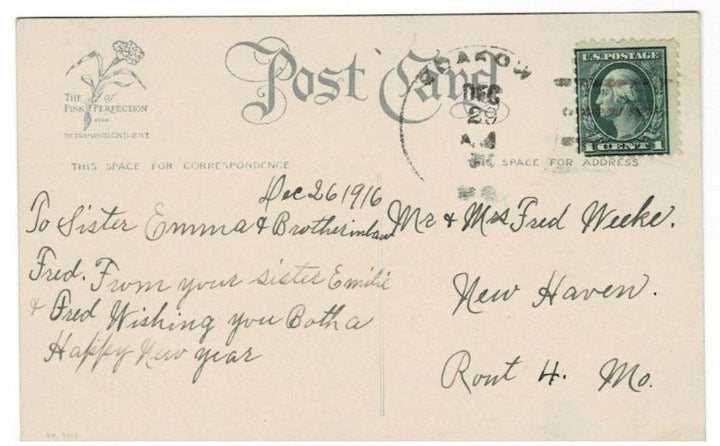 Post Card
THE PINK of PERFECTION
THIS SPACE FOR CORRESPONDENCE
THIS SPACE FOR ADDRESS
DEC
29
U.S. POSTAGE
1 CENT 1
Dec 26 1916
To Sister Emma & Brotherinlaw
Fred. From your sister Emilie
& Fred Wishing you Both a
Happy New year
Mr & Mrs Fred Weeke.
New Haven.
Rout 4. Mo.